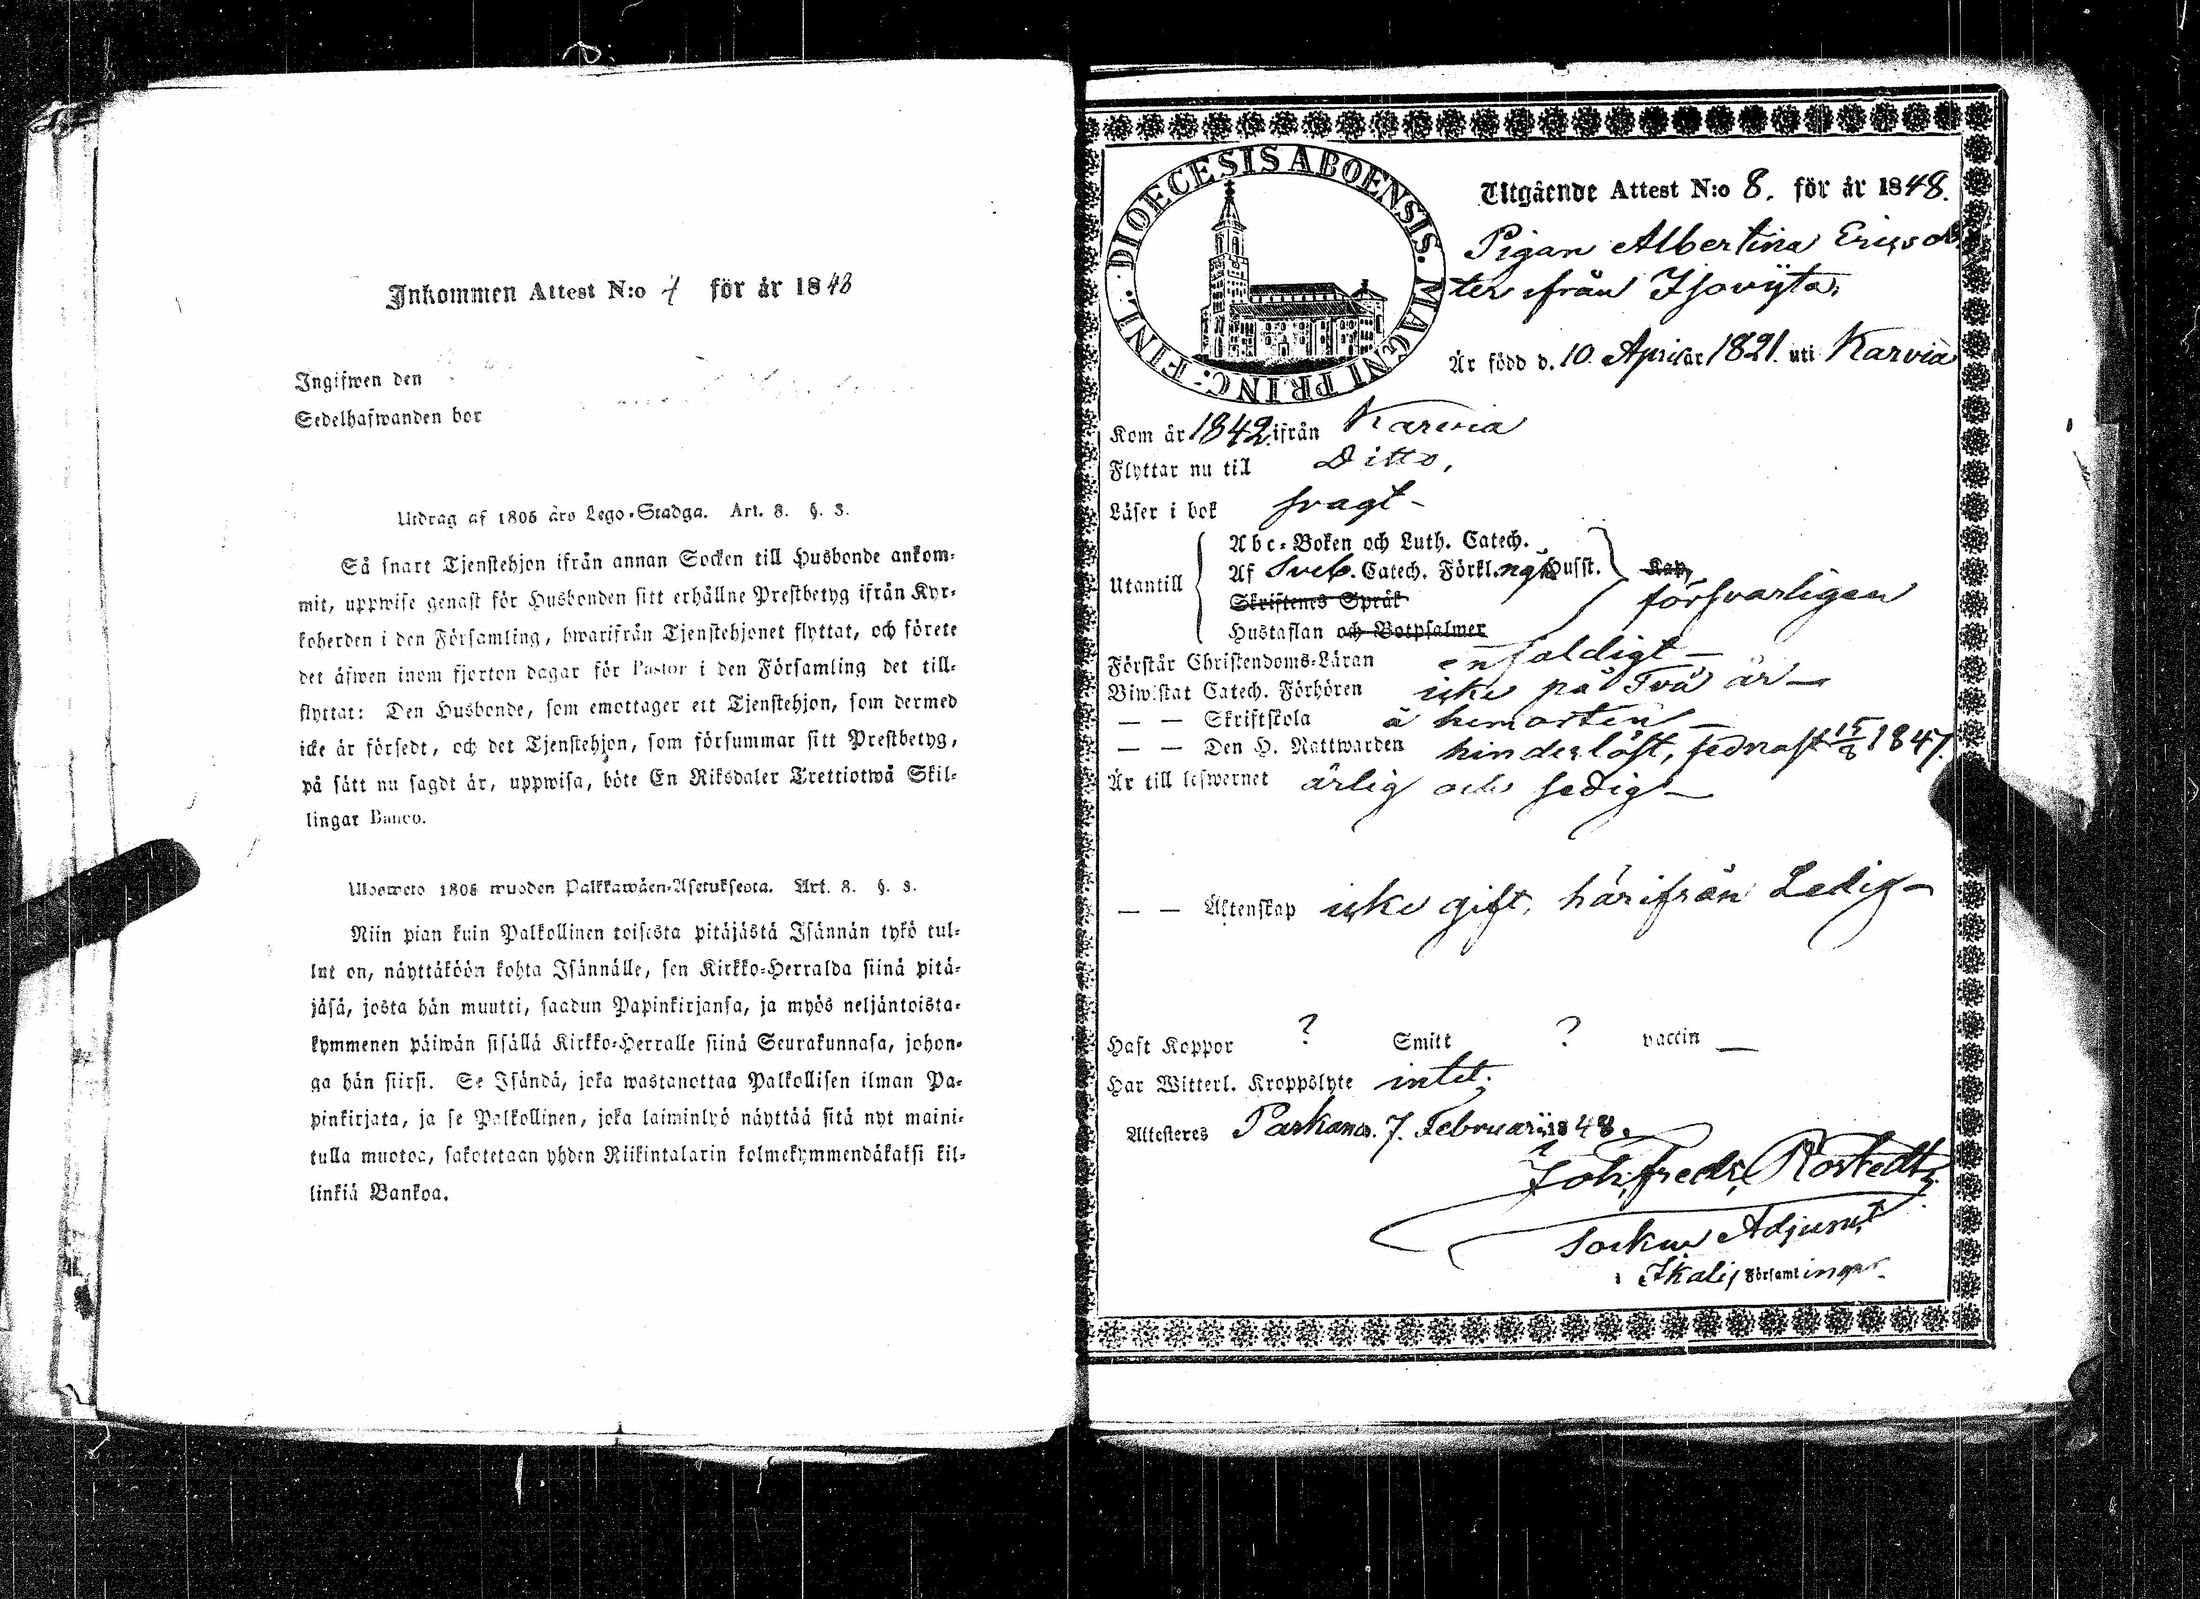 Inkommen Attest N:o 4 för år 1848
Ingifwen den
Sedelhafwanden bor
Utdrag af 1805 års Lego-Stadga. Art. 8. §. 3.
Så snart Tjenstehjon ifrån annan Socken till Husbonde ankom-
mit, uppwise genast för Husbonden sitt erhållne Prestbetyg ifrån Kyr-
koherden i den Församling, hwarifrån Tjenstehjonet flyttat, och förete
det äfwen inom fjorton dagar för Pastor i den Församling det till-
flyttat: Den Husbonde, som emottager ett Tjenstehjon, som dermed
icke är försedt, och det Tjenstehjon, som försummar sitt Prestbetyg,
på sätt nu sagdt är, uppwisa, böte En Riksdaler Trettiotwå Skil-
lingar Banco.
Ulosweto 1805 wuoden Palkkawäen-Asetuksesta. Art. 8. §. 3.
Niin pian kuin Palkollinen toisesta pitäjästä Isännän tykö tul-
lut on, näyttäköön kohta Isännälle, sen Kirkko-Herralda siinä pitä-
jäsä, josta hän muutti, saadun Papinkirjansa, ja myös neljäntoista-
kymmenen päiwän sisällä Kirkko-Herralle siinä Seurakunnasa, johon-
ga hän siirsi. Se Isändä, joka wastanottaa Palkollisen ilman Pa-
pinkirjata, ja se Palkollinen, joka laiminlyö näyttää sitä nyt maini-
tulla muotoa, sakotetaan yhden Riikintalarin kolmekymmendäkaksi kil-
linkiä Bankoa.
DIOECESIS ABOENSIS. MAGNI PRINC: FINL.
Utgående Attest N:o 8. för år 1848.
Pigan Albertina Ericsdot
ter ifrån Isovyta,
Är född d. 10 April år 1821. uti Karvia
Kom år 1842 ifrån Karvia
Flyttar nu till Ditto,
Läser i bok svagt-
Abc-Boken och Luth. Catech.
Utantill Af Sveb. Catech. Förkl.ng, Husst. Kap
Skriftenes Språk försvarligen
Hustaflan och Botpsalmer
Förstår Christendoms-Läran enfaldigt-
Biwistat Catech. Förhören icke på två år-
— — Skriftskola å hemorten-
— — Den H. Nattwarden hinderlöst, sednast 15/8 1847.
Är till lefwernet ärlig och sedig-
— — Äktenskap icke gift, härifrån Ledig-
Haft Koppor ? Smitt ? vaccin —
Har Witterl. Kroppslyte intet;
Attesteres Parkano. 7. Februarii 1848.
Joh. Fredr. Rostedt
Sockne Adjunct
i Ikalis Församlingar.